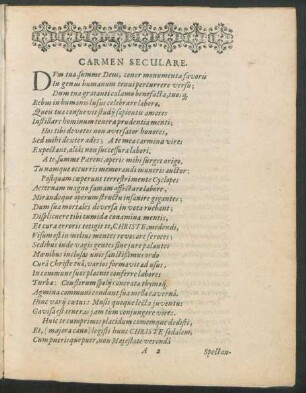 CARMEN SECULARE.
DVm tua, summe Deus, conor monumenta favoris
In genus humanum tenui percurrere versu;
Dum tua gratanti calamo benefacta, tuosq;
Rebus in humanis lusus celebrare labora,
Queis tua consuevit studijs sapientia amores
Instillare hominum tenera prudentia menti;
Hos tibi devotos non aversator honores,
Sed mihi dexter ades; A te mea carmina vires
Expectant, alióſ non successura labori,
A te summe Parens operis mihi surget origo,
Tu namque occurris memorandi muneris auctor.
Postquam cæperunt terrestri mente Cyclopes
Æternam magno famam affectare labore,
Mirandoque operum structu insanire gigantes;
Dum sua mortales diversa in vota ruebant;
Displicuere tibi tumidæ tnamina mentis,
Et cura erroris tetigit te, CHRISTE, medendi,
Visum est in melius mentes revocare feroces:
Sedibus inde vagis gentes sine jure palantes
Manibus inclusas unis sanctissimus ordo
Cura Christe tua, varios formavit ad usus;
In commune suos planta conferre labores
Turba: Conferrum spolÿ cencrata thymiuj,
Agmina communi condunt sua mella caverni.
Hinc varij cœtus: Musis quoque lecta juventus
Gavisa est teneras jam tum conjungere vires.
Huic te cumprimis placidum comemque dedisti,
Et, (majora cano) legisti hunc CHRISTE sodalem,
Cum pueris que puer, non Majestate verendâ
A 2 Spectan-